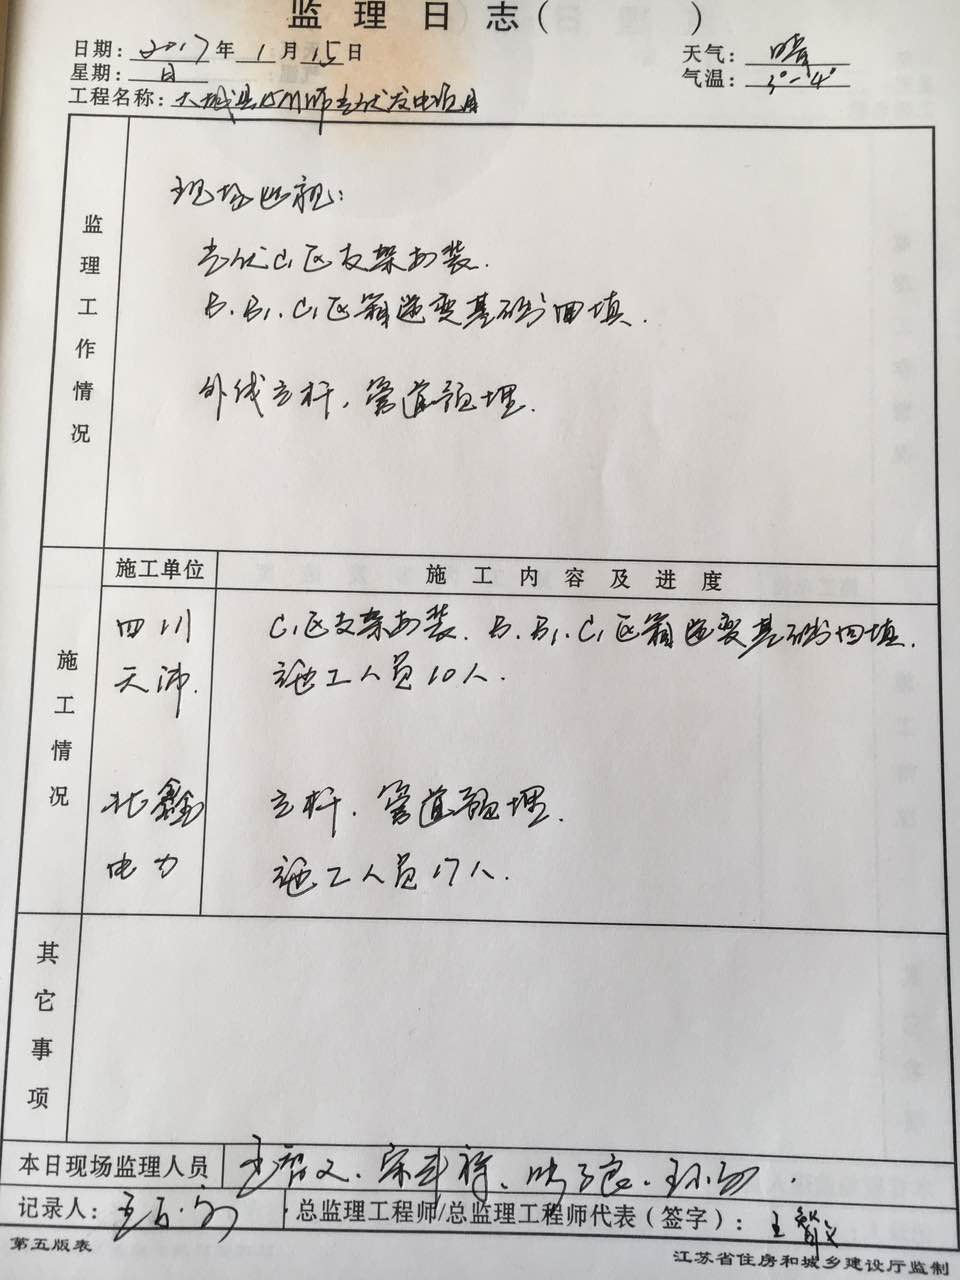 监理日志( )
日期: 2017年 1月 15日
天气: 晴
星期: 日
气温: 3°-4°
工程名称: 大城县15MW光伏发电项目
监理工作情况
现场巡视:
光伏C1区支架安装.
B.B1.C1区箱逆变基础回填.
外线立杆、管道预埋.
施工情况
施工单位
施工内容及进度
四川
C1区支架安装. B.B1.C1区箱逆变基础回填.
天沛.
施工人员10人.
北鑫
立杆、管道预埋.
电力
施工人员17人.
其它事项
本日现场监理人员
记录人:
总监理工程师/总监理工程师代表(签字):
第五版表
江苏省住房和城乡建设厅监制